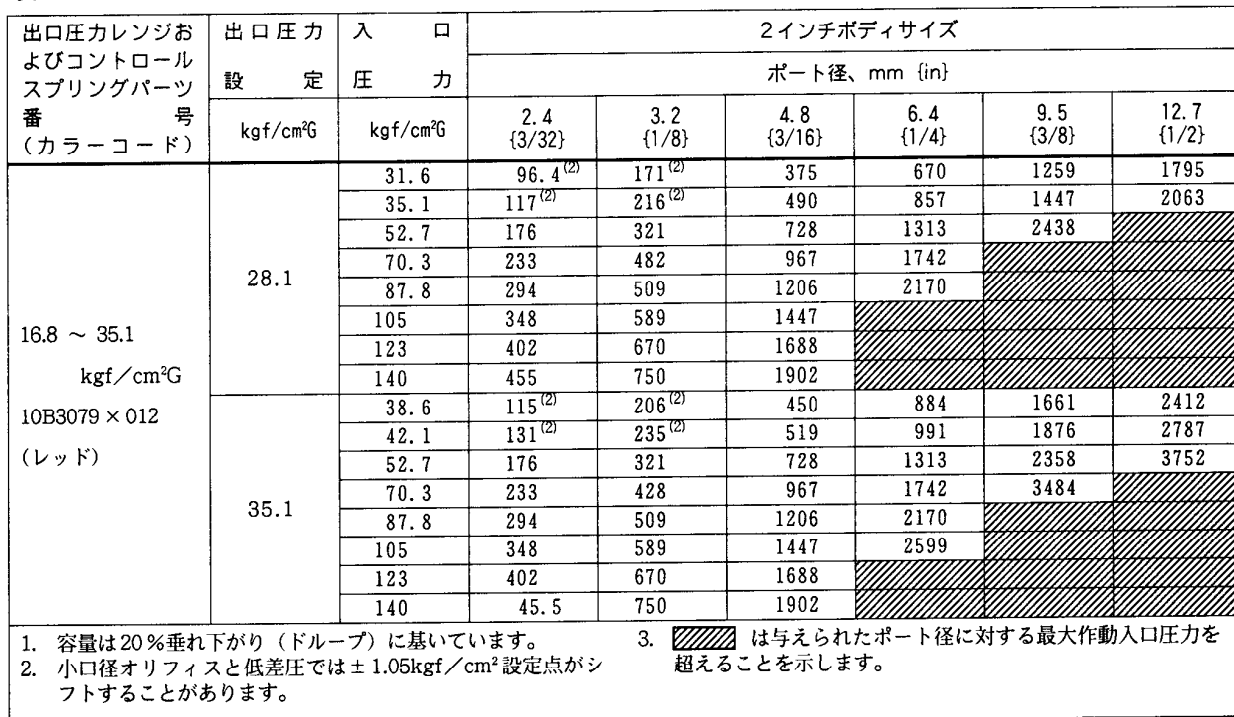 出口圧力レンジおよびコントロールスプリングパーツ番号(カラーコード) 出口圧力設定 入口圧力 2インチボディサイズ
ポート径、mm {in}
kgf/cm²G kgf/cm²G 2.4 {3/32} 3.2 {1/8} 4.8 {3/16} 6.4 {1/4} 9.5 {3/8} 12.7 {1/2}
16.8 ～ 35.1
kgf／cm²G
10B3079×012
(レッド)
28.1
31.6 96.4⁽²⁾ 171⁽²⁾ 375 670 1259 1795
35.1 117⁽²⁾ 216⁽²⁾ 490 857 1447 2063
52.7 176 321 728 1313 2438
70.3 233 482 967 1742
87.8 294 509 1206 2170
105 348 589 1447
123 402 670 1688
140 455 750 1902
35.1
38.6 115⁽²⁾ 206⁽²⁾ 450 884 1661 2412
42.1 131⁽²⁾ 235⁽²⁾ 519 991 1876 2787
52.7 176 321 728 1313 2358 3752
70.3 233 428 967 1742 3484
87.8 294 509 1206 2170
105 348 589 1447 2599
123 402 670 1688
140 45.5 750 1902
1. 容量は20％垂れ下がり（ドループ）に基いています。
2. 小口径オリフィスと低差圧では±1.05kgf／cm²設定点がシ
フトすることがあります。
3. は与えられたポート径に対する最大作動入口圧力を
超えることを示します。